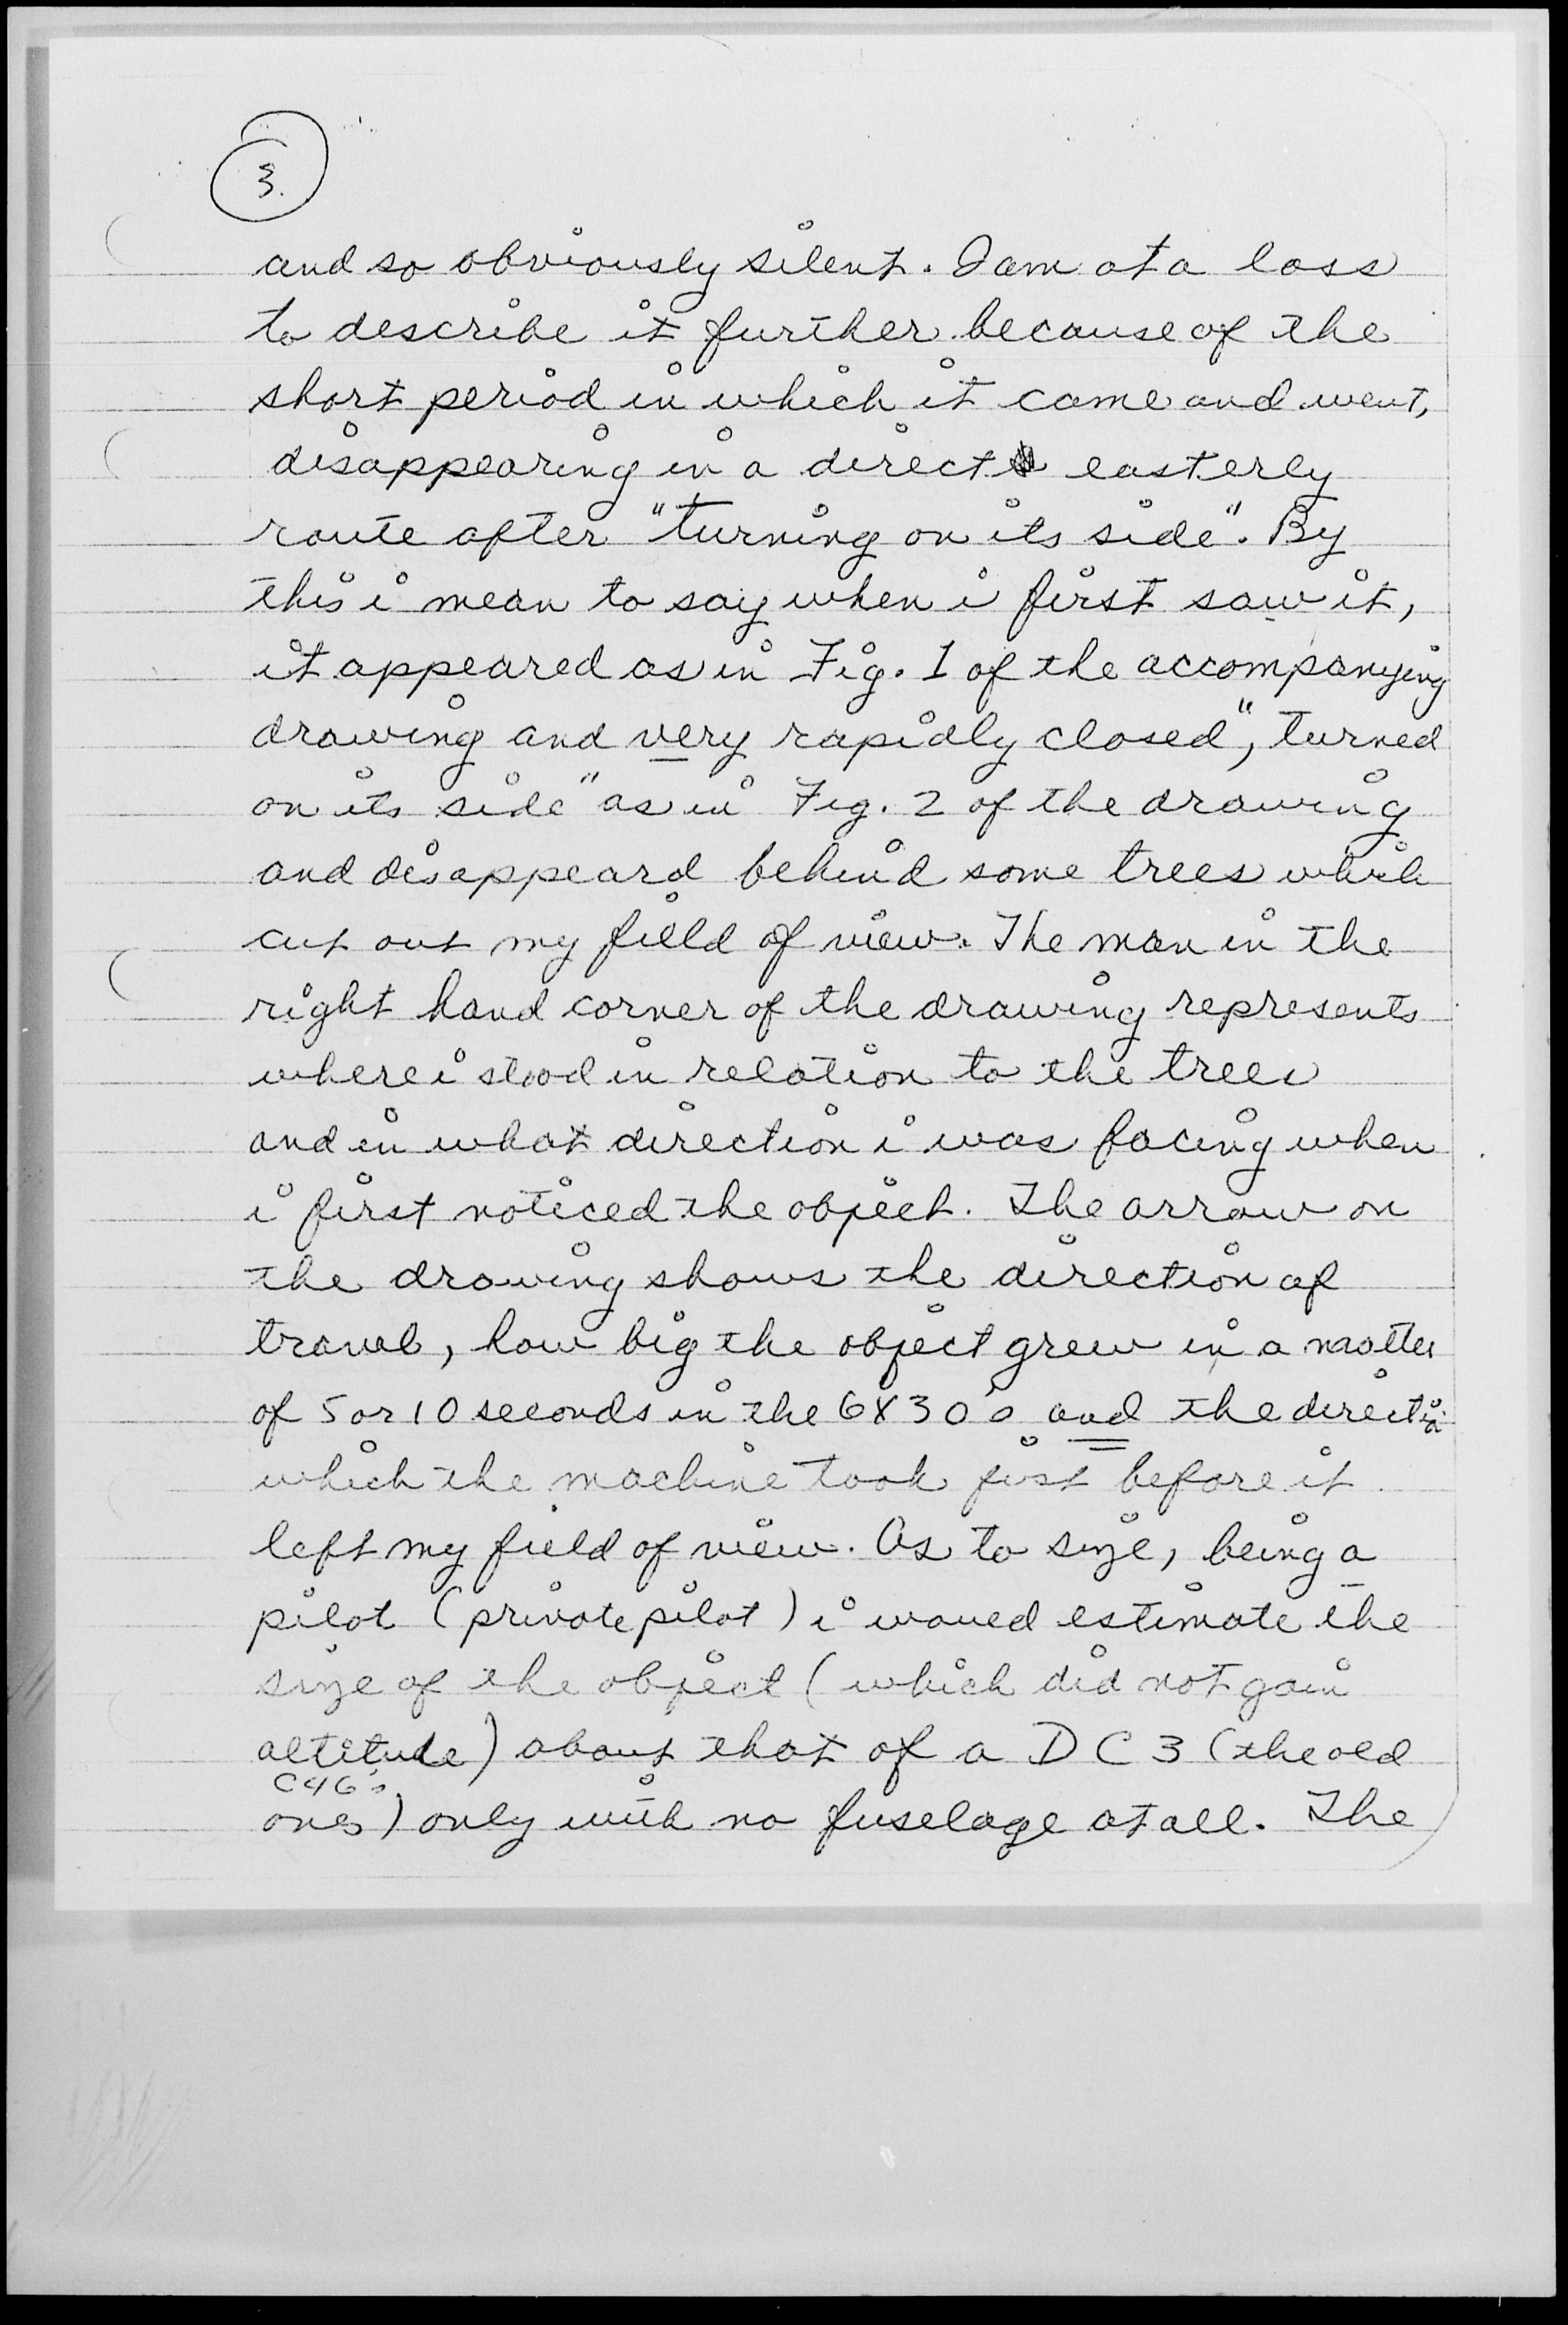 3.
and so obviously silent. I am at a loss
to describe it further because of the
short period in which it came and went,
disappearing in a direct easterly
route after "turning on its side". By
this i mean to say when i first saw it,
it appeared as in Fig. 1 of the accompanying
drawing and very rapidly closed", turned
on its side" as in Fig. 2 of the drawing
and disappeard behind some trees which
cut out my field of view. The man in the
right hand corner of the drawing represents
where i stood in relation to the trees
and in what direction i was facing when
i first noticed the object. The arrow on
the drawing shows the direction of
travel, how big the object grew in a matter
of 5 or 10 seconds in the 6X30's and the direction
which the machine took just before it
left my field of view. As to size, being a
pilot (private pilot) i would estimate the
size of the object (which did not gain
altitude) about that of a DC3 (the old
C46's
ones) only with no fuselage at all. The